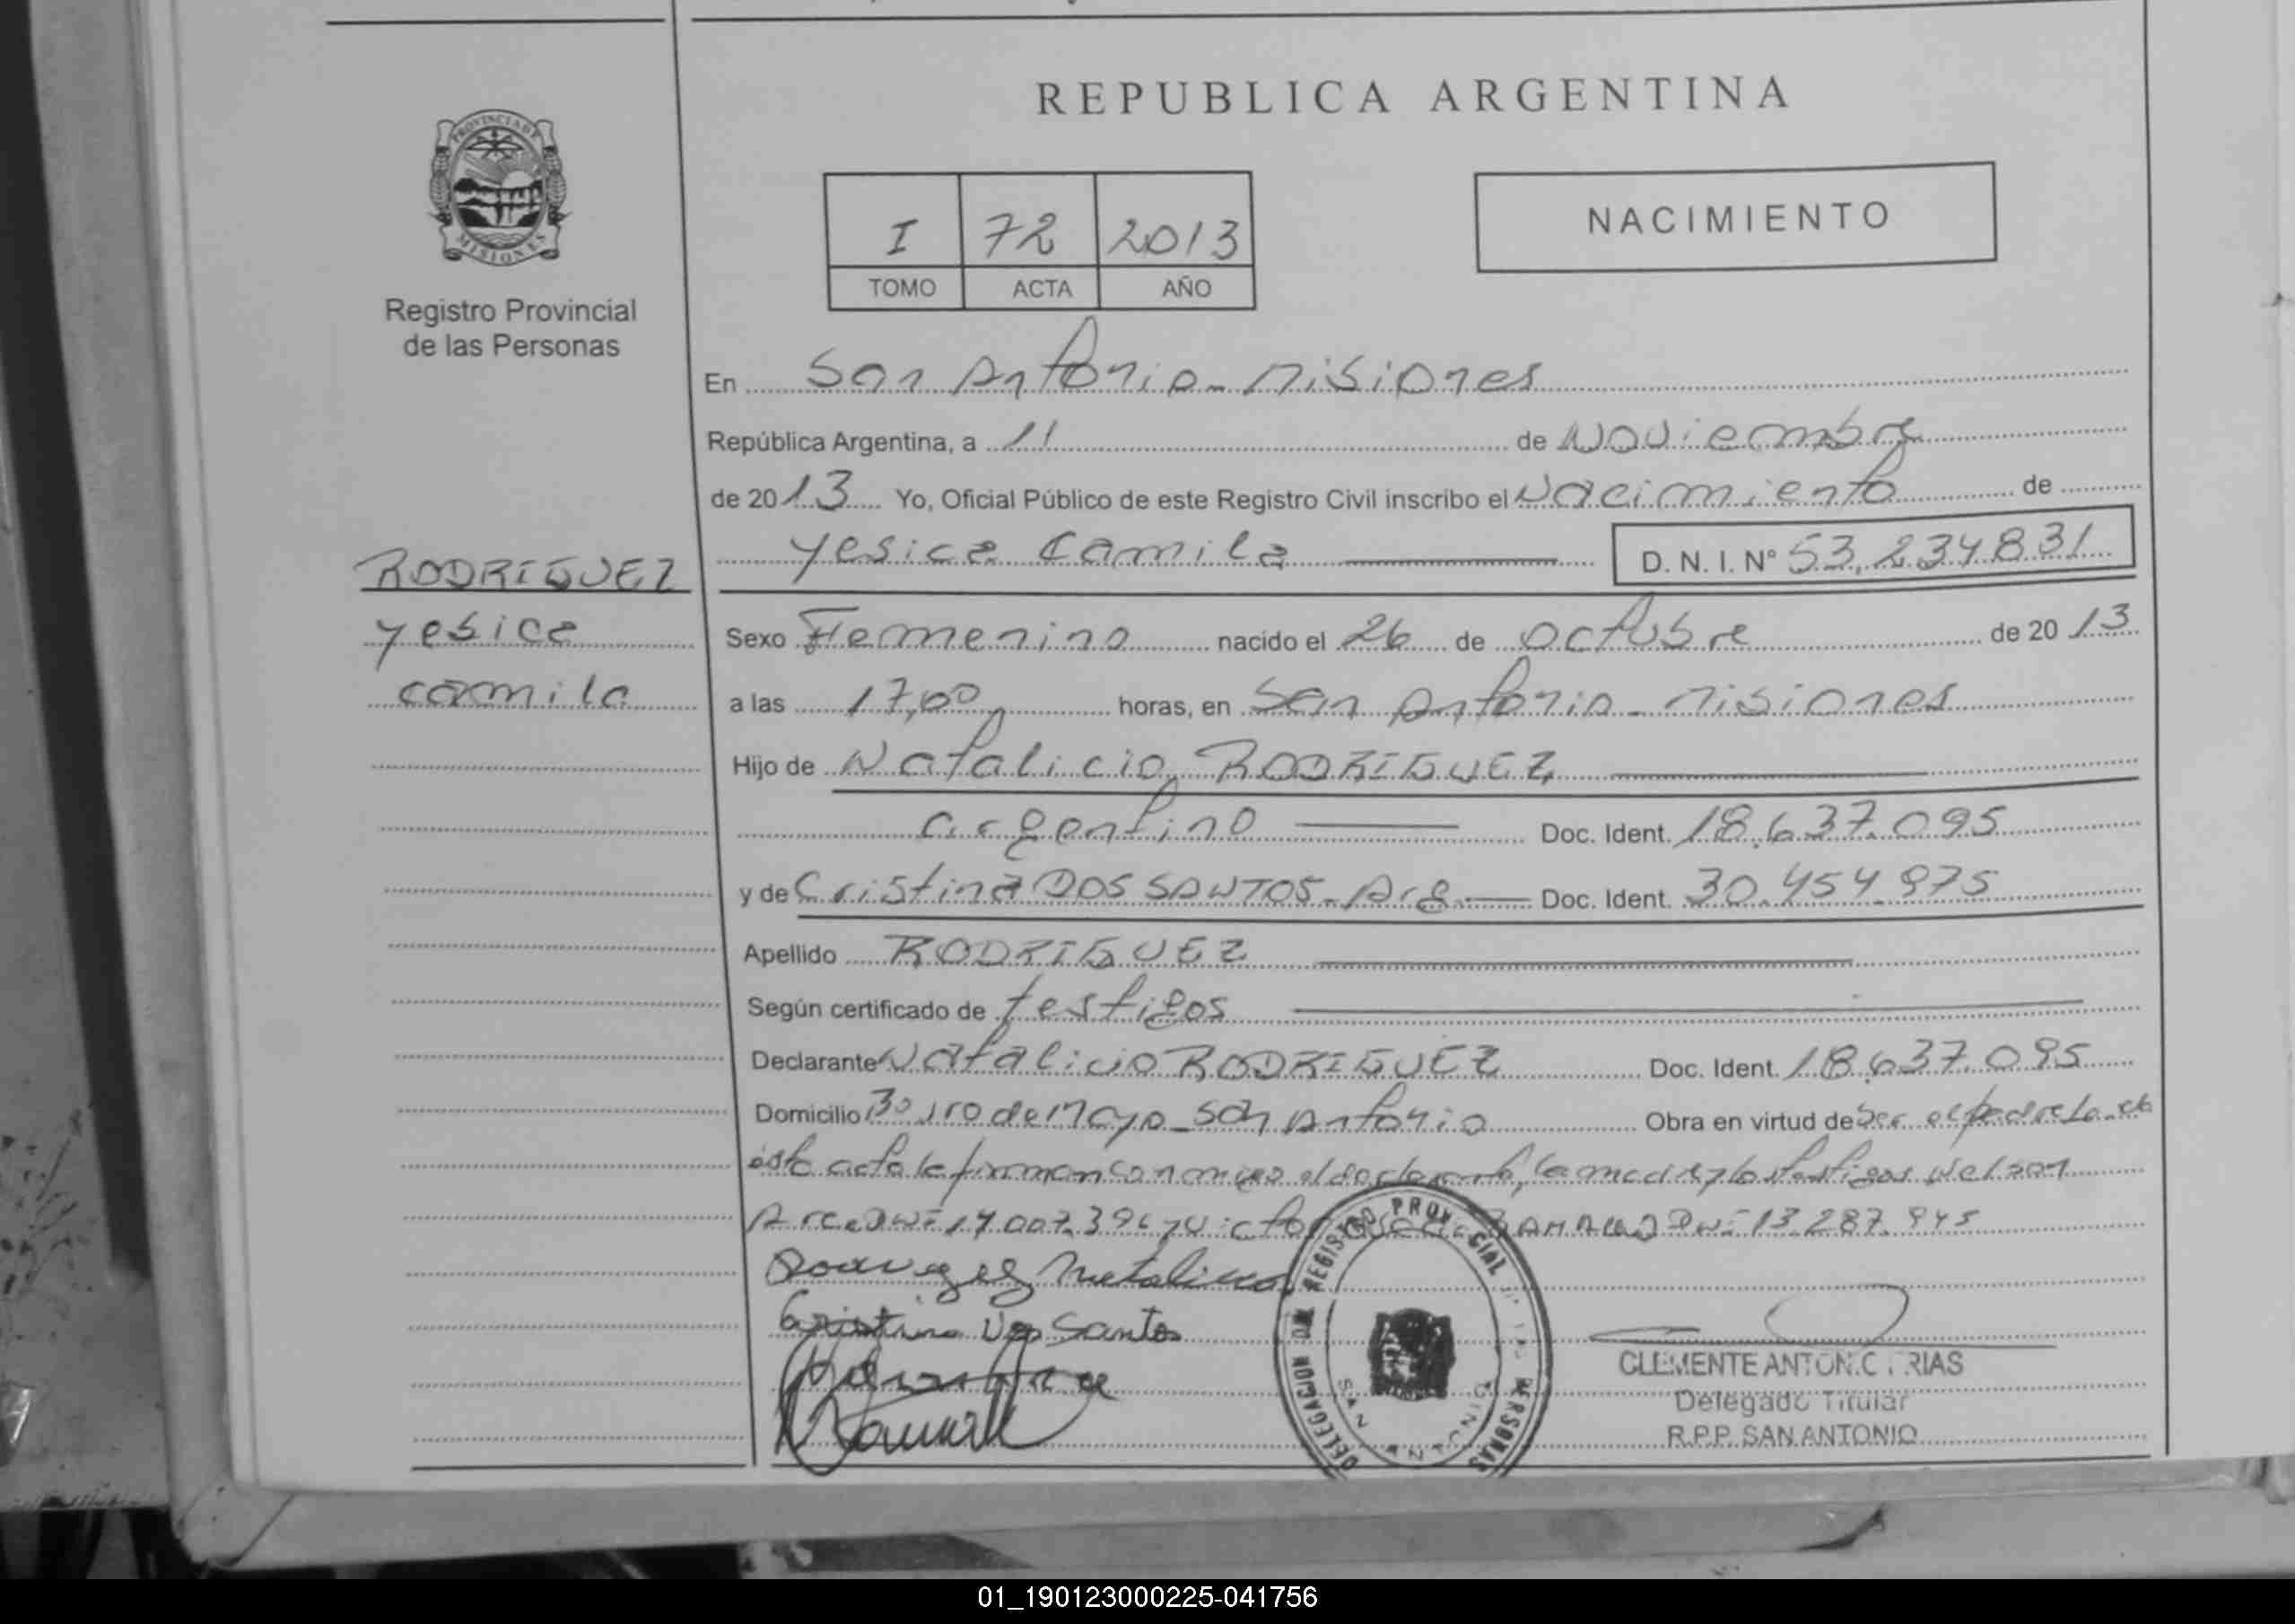 REPUBLICA ARGENTINA
PROVINCIA DE
MISIONES
Registro Provincial
de las Personas
I 72 2013
TOMO ACTA AÑO
NACIMIENTO
En San Antonio - Misiones
República Argentina, a 11 de Noviembre
de 2013 Yo, Oficial Público de este Registro Civil inscribo el Nacimiento de
Yesica Camila D. N. I. Nº 53.234831
RODRIGUEZ
Yesica
Camila
Sexo Femenino nacido el 26 de Octubre de 2013
a las 17,00 horas, en San Antonio - Misiones
Hijo de Natalicio RODRIGUEZ
argentino Doc. Ident. 18.637.095
y de Cristina DOS SANTOS - Arg. Doc. Ident. 30.454.975
Apellido RODRIGUEZ
Según certificado de testigos
Declarante Natalicio RODRIGUEZ Doc. Ident. 18.637.095
Domicilio Bo 1ro de Mayo - San Antonio Obra en virtud de ser el padre
ésta acta la firman conmigo el declarante, la madre y los testigos Nelson
Arce DNI 17.007.396 y Victor DNI 13.287.945
Cristina Dos Santos
DELEGACION DEL REGISTRO PROVINCIAL DE LAS PERSONAS
CLEMENTE ANTONIO
Delegado Titular
R.P.P. SAN ANTONIO
01_190123000225-041756